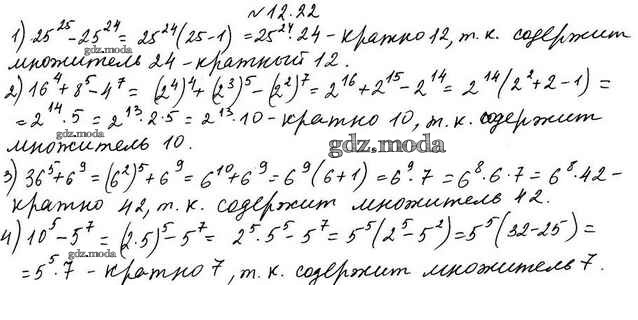 №12.22
1) 25²⁵-25²⁴ = 25²⁴(25-1) = 25²⁴·24 - кратно 12, т.к. содержит
gdz.moda
множитель 24 - кратный 12.
2) 16⁴+8⁵-4⁷ = (2⁴)⁴+(2³)⁵-(2²)⁷ = 2¹⁶+2¹⁵-2¹⁴ = 2¹⁴(2²+2-1) =
gdz.moda
= 2¹⁴·5 = 2¹³·2·5 = 2¹³·10 - кратно 10, т.к. содержит
множитель 10.
gdz.moda
3) 36⁵+6⁹ = (6²)⁵+6⁹ = 6¹⁰+6⁹ = 6⁹(6+1) = 6⁹·7 = 6⁸·6·7 = 6⁸·42 -
gdz.moda
кратно 42, т.к. содержит множитель 42.
4) 10⁵-5⁷ = (2·5)⁵-5⁷ = 2⁵·5⁵-5⁷ = 5⁵(2⁵-5²) = 5⁵(32-25) =
gdz.moda
= 5⁵·7 - кратно 7, т.к. содержит множитель 7.